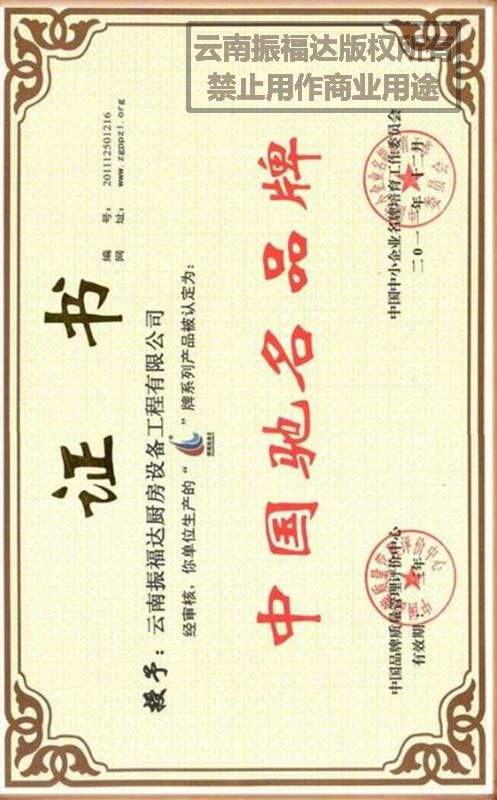 云南振福达版权所有
禁止用作商业用途
证书
编 号：201112501216
网 址：www.zgppzl.org
授予：云南振福达厨房设备工程有限公司
经审核，你单位生产的“ ”牌系列产品被认定为：
中国驰名品牌
中国品牌质量管理评价中心
有效期：三年
中国中小企业名牌培育工作委员会
二0一一年十二月